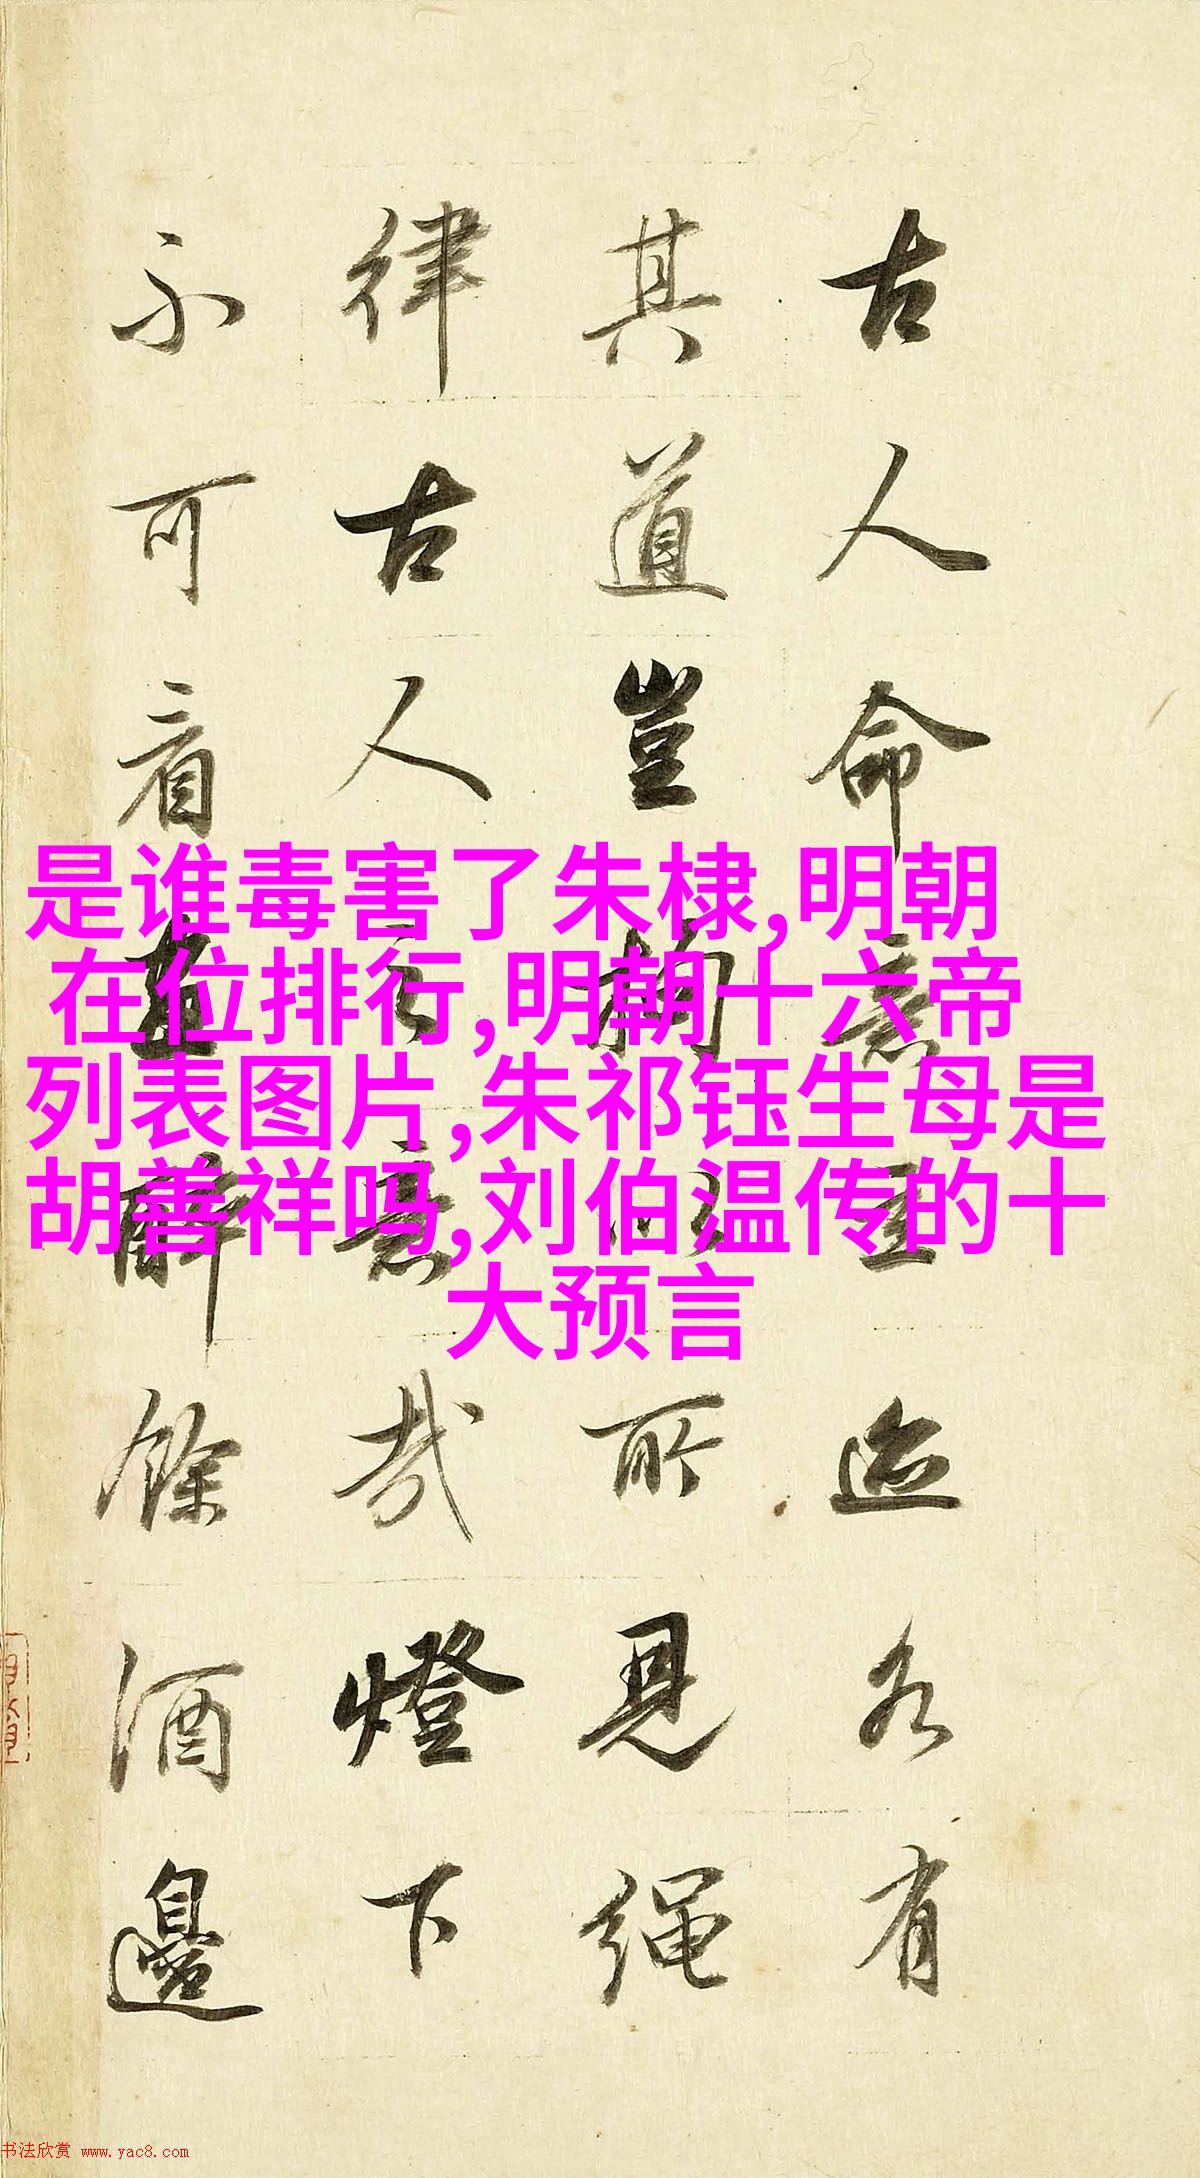 古人命意立迹各有
其道豈拘以所見繩
律古人之意哉燈下
不可看畫醉餘酒邊
是谁毒害了朱棣,明朝
在位排行,明朝十六帝
列表图片,朱祁钰生母是
胡善祥吗,刘伯温传的十
大预言
书法欣赏 www.yac8.com